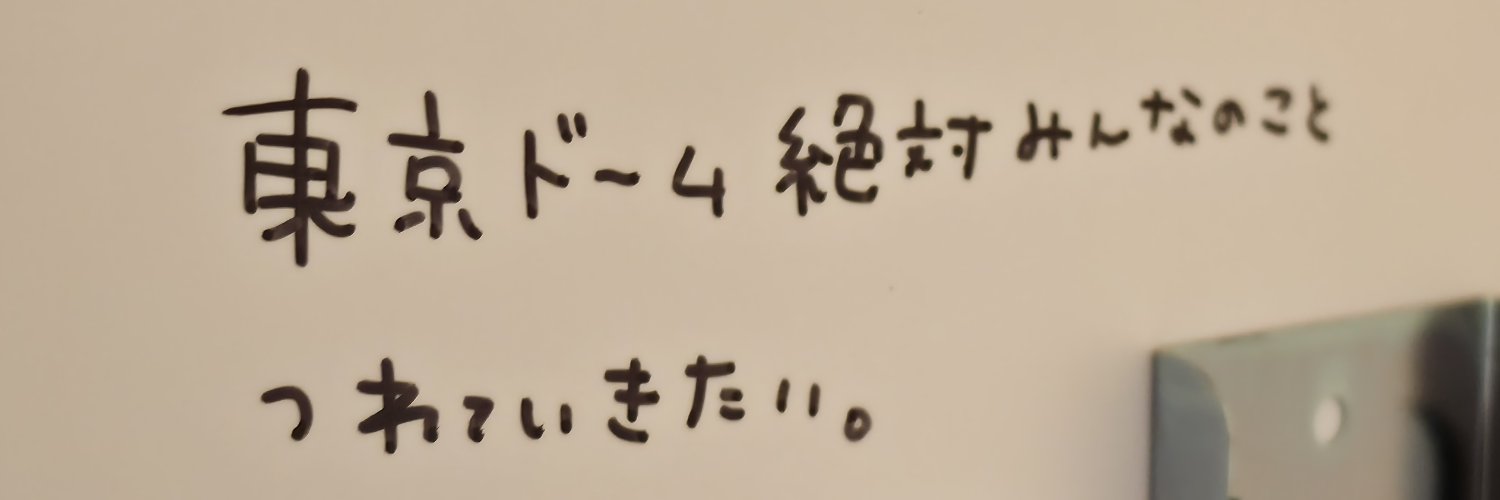 東京ドーム絶対みんなのこと
つれていきたい。